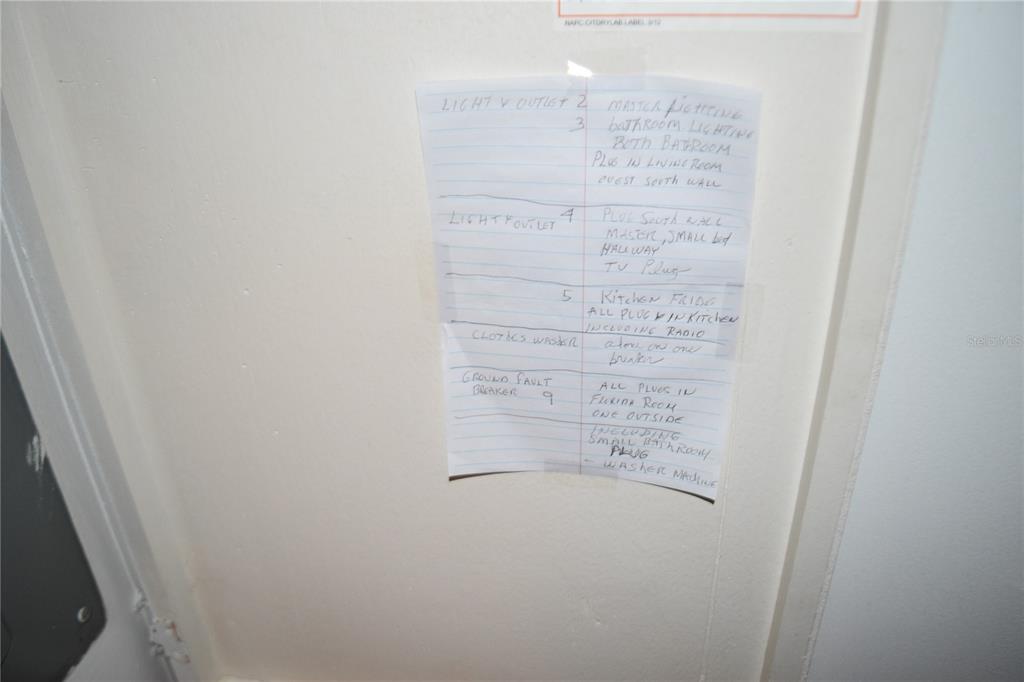 NAPC CITDRYLAB LABEL 9/12
LIGHT & OUTLET 2 MASTER LIGHTING
3 bATHROOM LIGHTING
BOTH BATHROOM
PLUG IN LIVING ROOM
OUEST SOUTH WALL
LIGHT & OUTLET 4 PLUG SOUTH WALL
MASTER, SMALL bed
HALLWAY
TV Plug
5 KITCHEN FRIDG
ALL PLUG IN KITCHEN
INCLUDING RADIO
CLOTHES WASHER alone on one
breaker
GROUND FAULT
BREAKER 9
ALL PLUGS IN
FLORIDA ROOM
ONE OUTSIDE
INCLUDING
SMALL BATHROOM
PLUG
- WASHER MACHINE
Stellar MLS